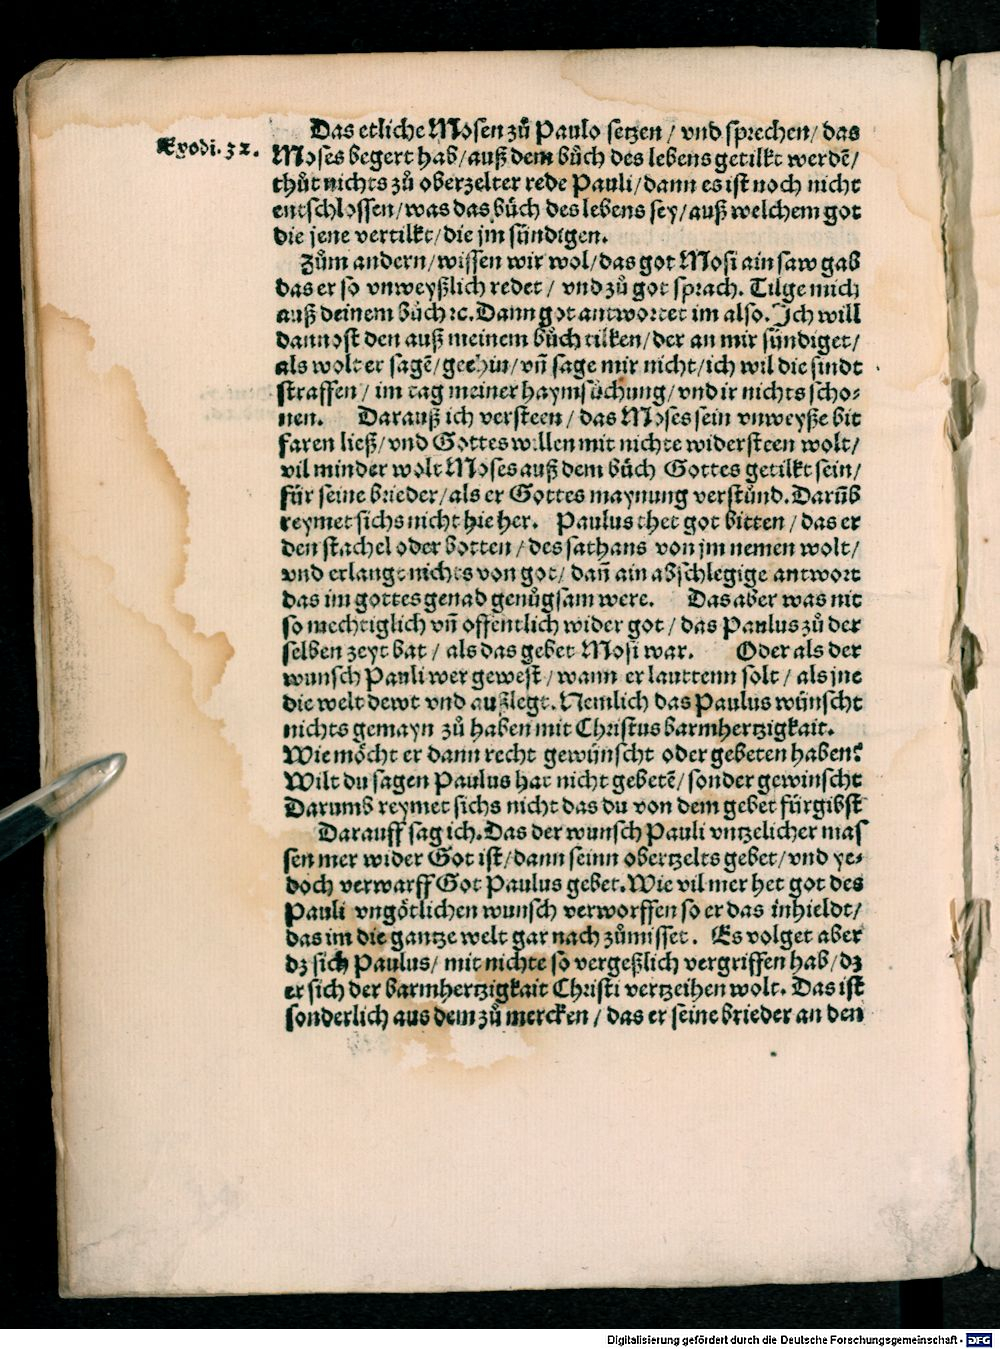 Exodi. 32.
Das etliche Mosen zů Paulo setzen / vnd sprechen / das
Moses begert hab / auß dem bůch des lebens getilkt werdē /
thůt nichts zů oberzelter rede Pauli / dann es ist noch nicht
entschlossen / was das bůch des lebens sey / auß welchem got
die jene vertilkt / die jm sündigen.
Zům andern / wissen wir wol / das got Mosi ain saw gab
das er so vnweyßlich redet / vnd zů got sprach. Tilge mich
auß deinem bůch ꝛc. Dann got antwortet im also. Ich will
dannost den auß meinem bůch tilken / der an mir sündiget /
als wolt er sagē / gee hin / vn̄ sage mir nicht / ich wil die sindt
straffen / im tag meiner haymsůchung / vnd ir nichts scho⸗
nen. Darauß ich versteen / das Moses sein vnweyße bit
faren ließ / vnd Gottes willen mit nichte widersteen wolt /
vil minder wolt Moses auß dem bůch Gottes getilkt sein /
für seine brieder / als er Gottes maynung verstůnd. Darūb
reymet sichs nicht hie her. Paulus thet got bitten / das er
den stachel oder botten / des sathans von jm nemen wolt /
vnd erlangt nichts von got / dan̄ ain abschlegige antwort
das im gottes genad genůgsam were. Das aber was nit
so mechtiglich vn̄ offentlich wider got / das Paulus zů der
selben zeyt bat / als das gebet Mosi war. Oder als der
wunsch Pauli wer gewest / wann er lauttenn solt / als jne
die welt dewt vnd außlegt. Nemlich das Paulus wünscht
nichts gemayn zů haben mit Christus barmhertzigkait.
Wie möcht er dann recht gewünscht oder gebeten haben?
Wilt du sagen Paulus hat nicht gebetē / sonder gewinscht
Darumb reymet sichs nicht das du von dem gebet fürgibst
Darauff sag ich. Das der wunsch Pauli vntzelicher mas
sen mer wider Got ist / dann seinn obertzelts gebet / vnd ye⸗
doch verwarff Got Paulus gebet. Wie vil mer het got des
Pauli vngötlichen wunsch verworffen so er das inhieldt /
das im die gantze welt gar nach zůmisset. Es volget aber
dz sich Paulus / mit nichte so vergeßlich vergriffen hab / dz
er sich der barmhertzigkait Christi vertzeihen wolt. Das ist
sonderlich aus dem zů mercken / das er seine brieder an den
Digitalisierung gefördert durch die Deutsche Forschungsgemeinschaft - DFG